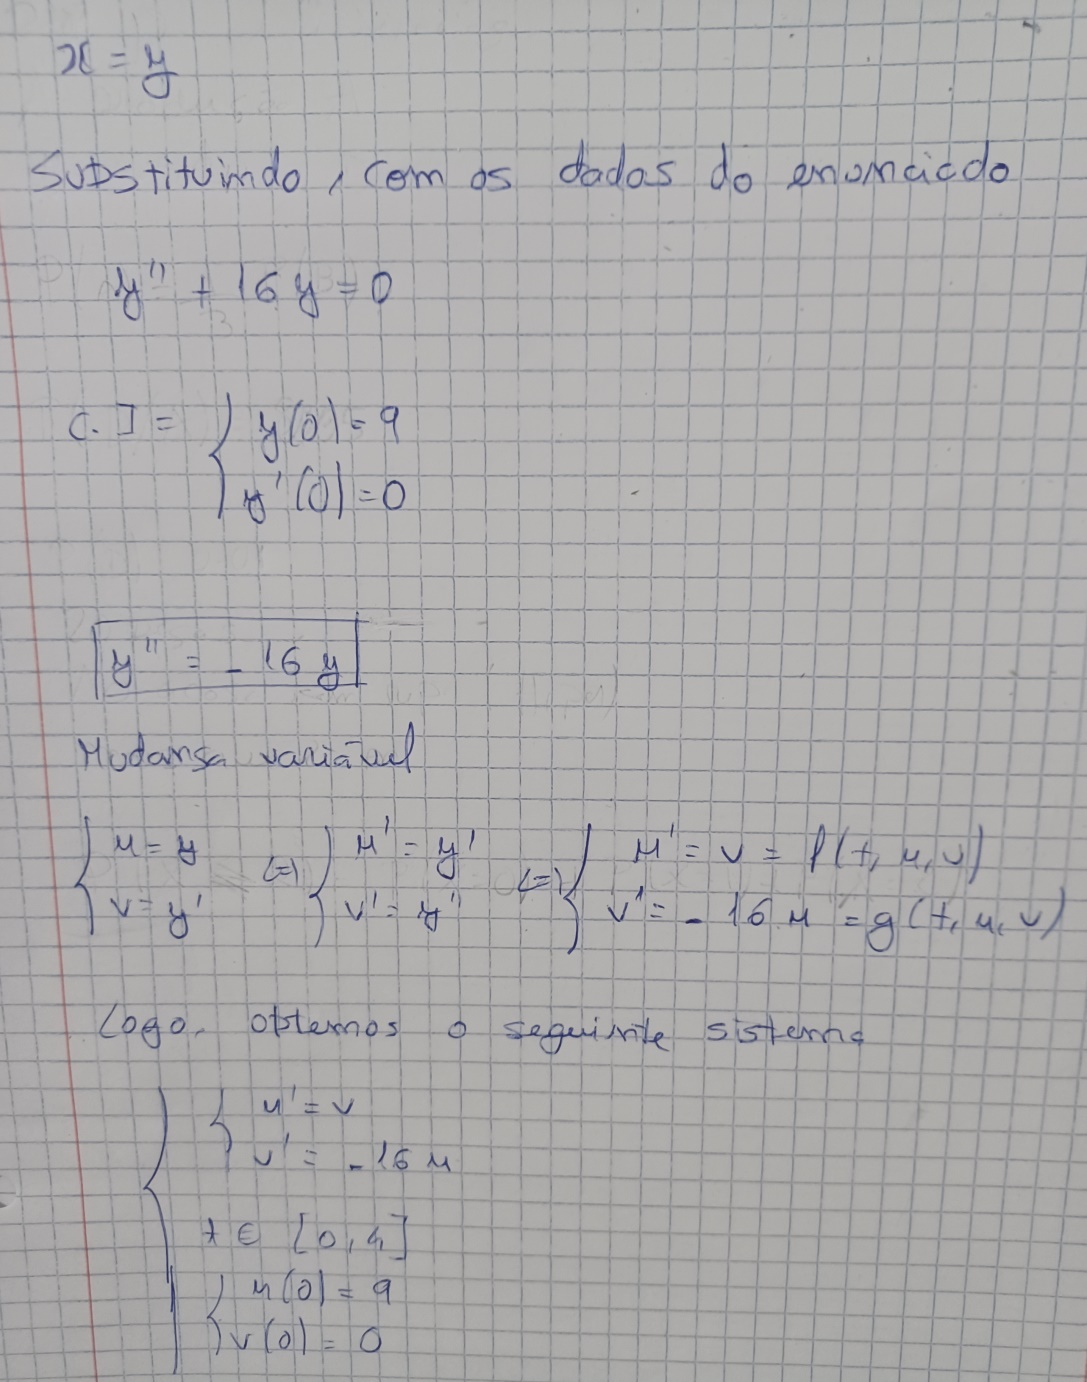 x = y
Substituindo, com os dados do enunciado
y'' + 16y = 0
C.I = { y(0) = 9
y'(0) = 0
y'' = - 16 y
Mudança variável
{ u = y (=) { u' = y' (=) { u' = v = f(t, u, v)
v = y' v' = y'' v' = - 16 u = g(t, u, v)
Logo, obtemos o seguinte sistema
{ { u' = v
v' = - 16 u
t ∈ [0, 4]
{ u(0) = 9
v(0) = 0